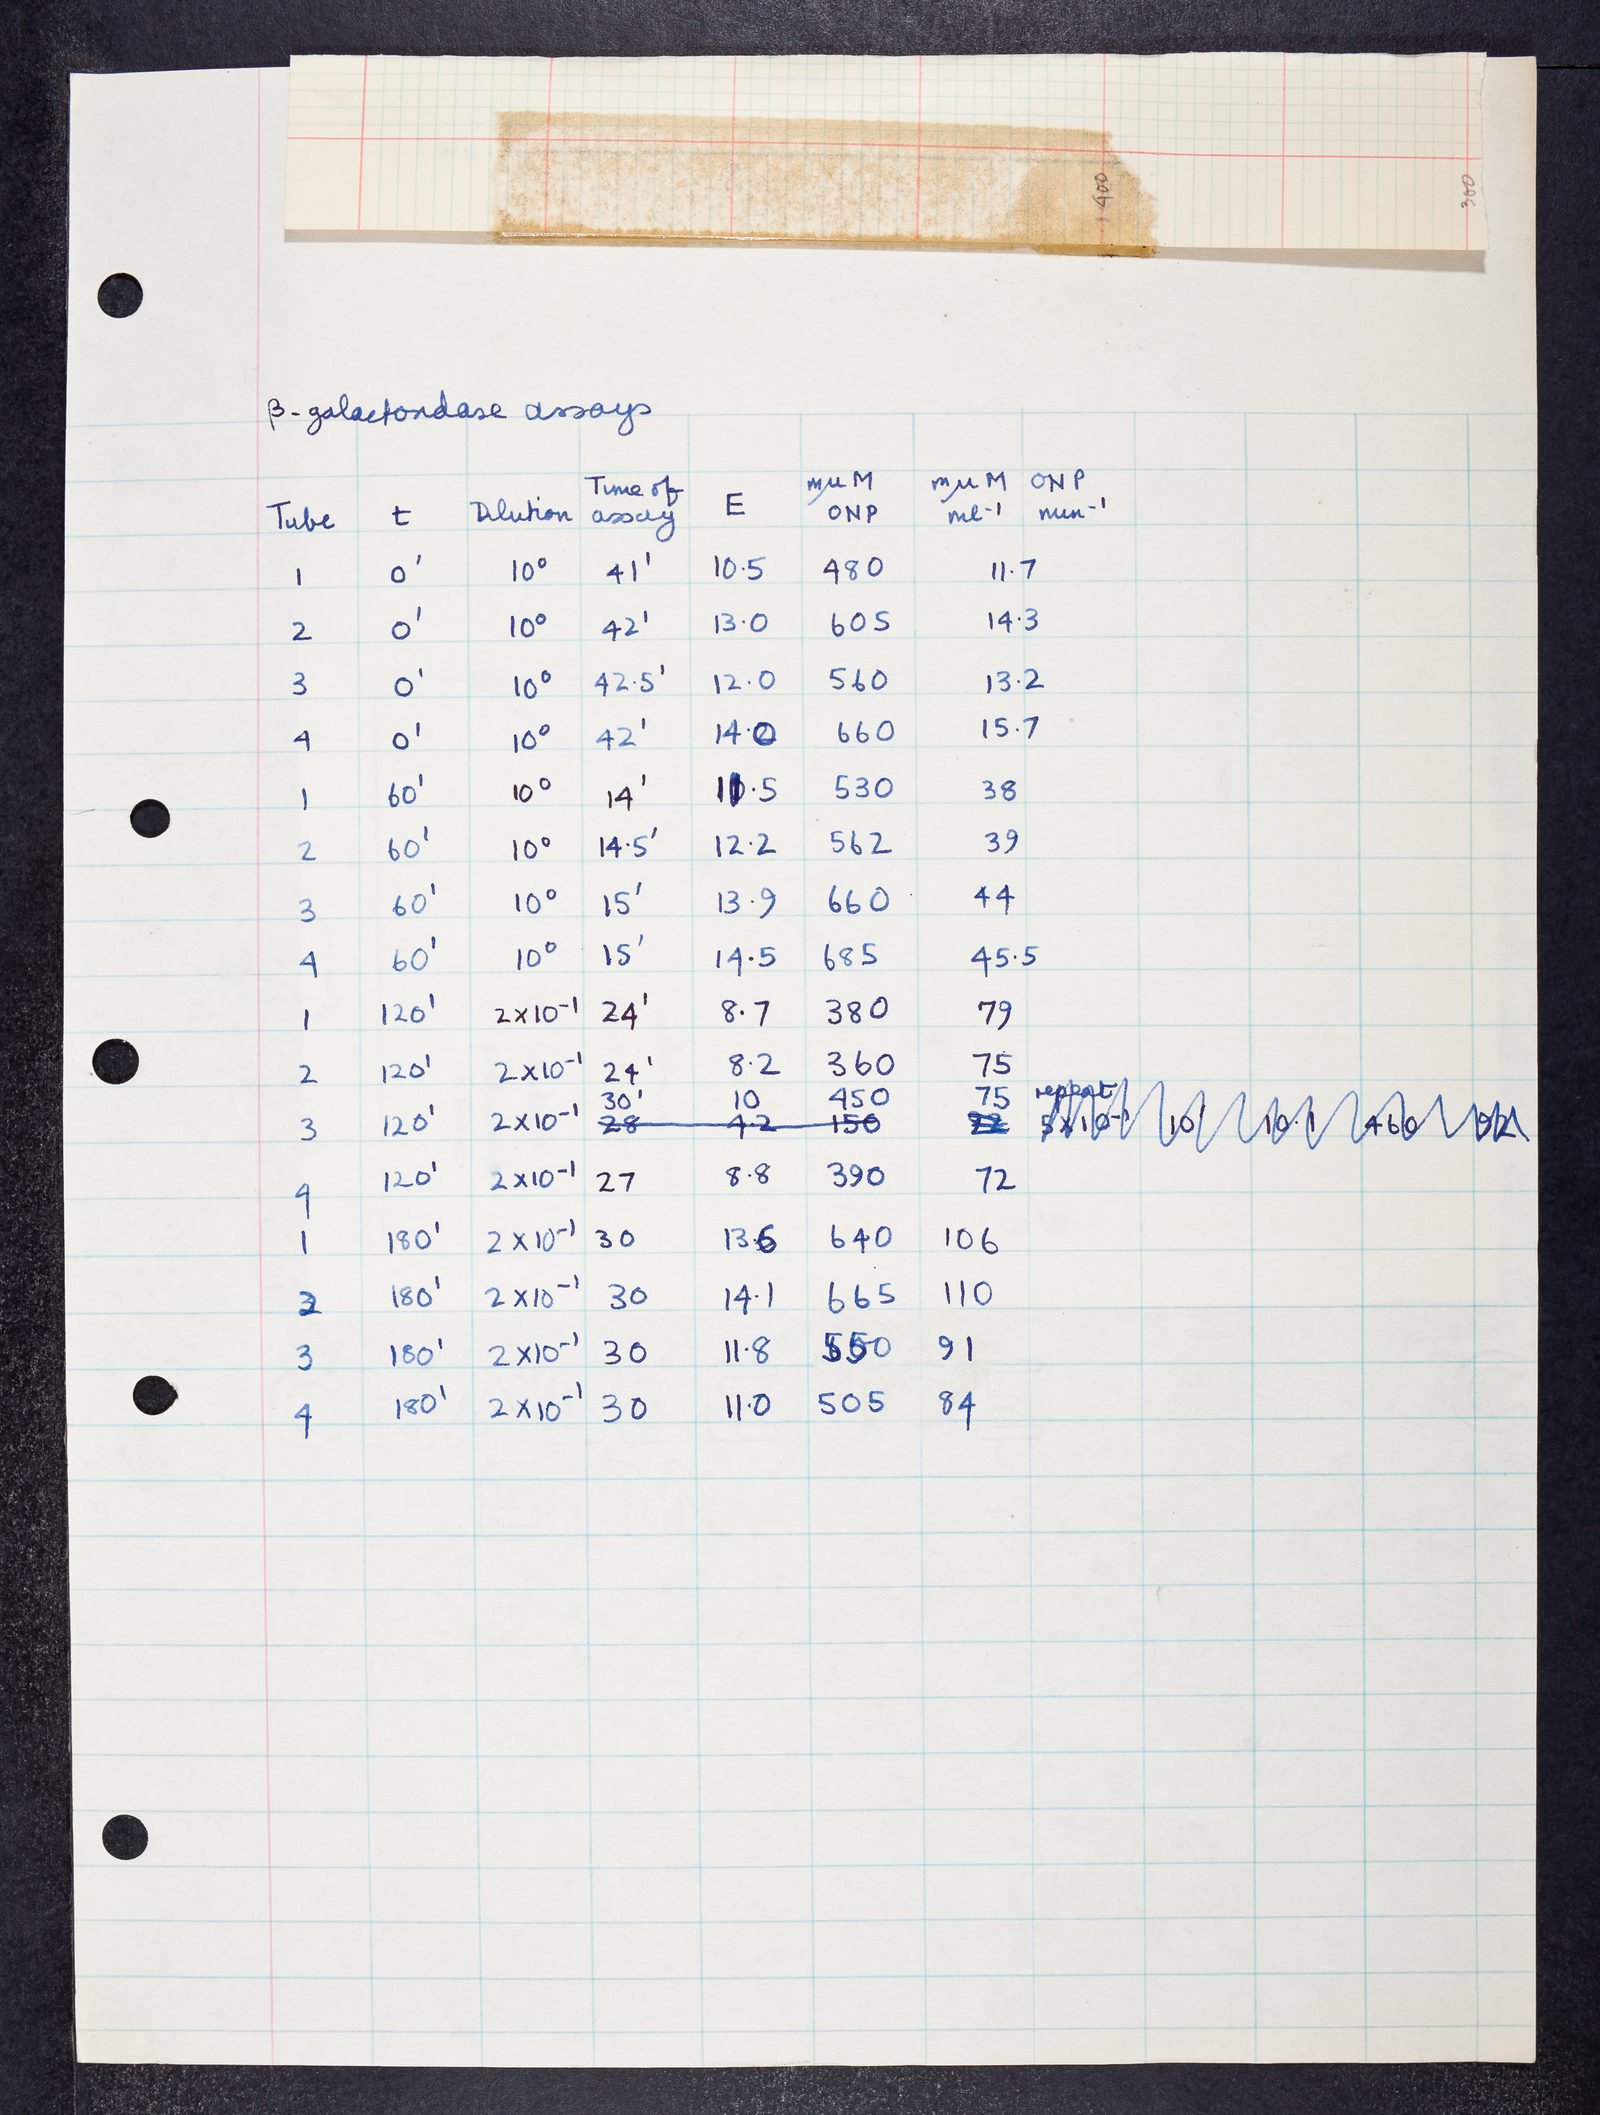 400
300
β-galactosidase assays
Tube t Dilution Time of assay E mμM ONP mμM ONP ml⁻¹ min⁻¹
1 0' 10⁰ 41' 10.5 480 11.7
2 0' 10⁰ 42' 13.0 605 14.3
3 0' 10⁰ 42.5' 12.0 560 13.2
4 0' 10⁰ 42' 14.0 660 15.7
1 60' 10⁰ 14' 11.5 530 38
2 60' 10⁰ 14.5' 12.2 562 39
3 60' 10⁰ 15' 13.9 660 44
4 60' 10⁰ 15' 14.5 685 45.5
1 120' 2x10⁻¹ 24' 8.7 380 79
2 120' 2x10⁻¹ 24' 8.2 360 75
30' 10 450 75 repeat
3 120' 2x10⁻¹ 28 4.2 150 5x10⁻¹ 10' 10.1 460 92
4 120' 2x10⁻¹ 27 8.8 390 72
1 180' 2x10⁻¹ 30 13.6 640 106
2 180' 2x10⁻¹ 30 14.1 665 110
3 180' 2x10⁻¹ 30 11.8 550 91
4 180' 2x10⁻¹ 30 11.0 505 84